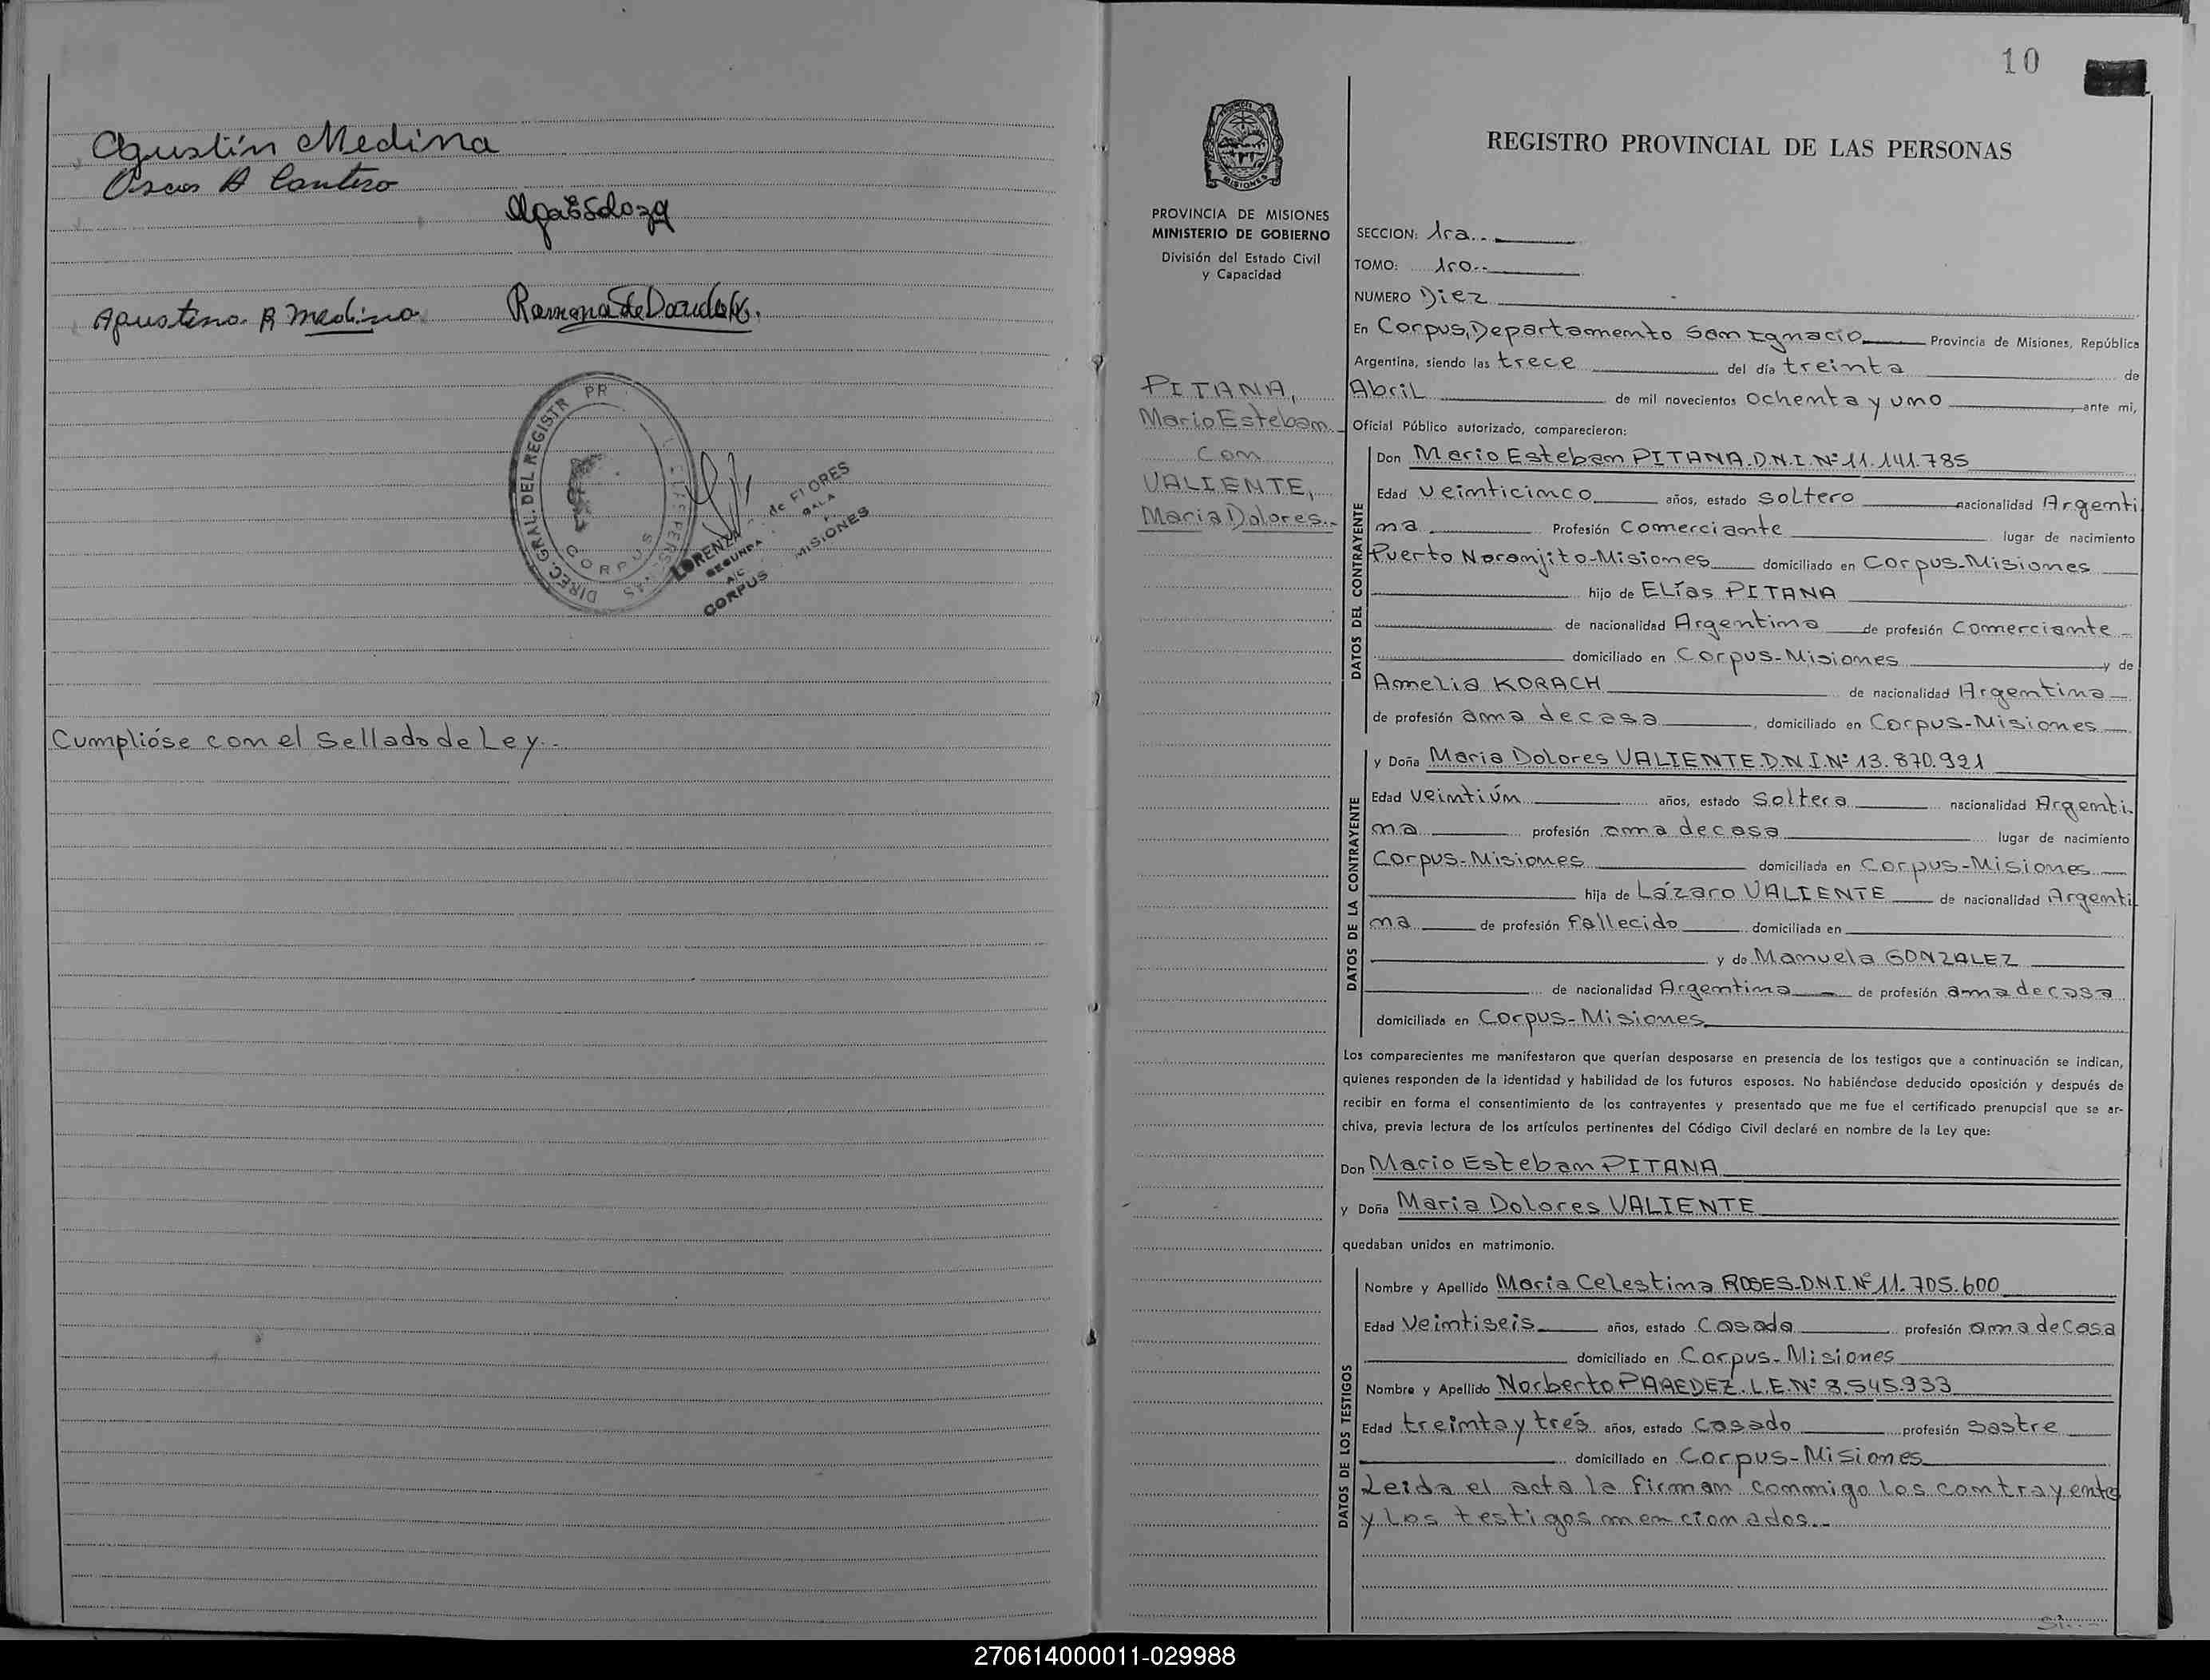 Agustín Medina
Oscar A Cantero
Agustina R Medina
DIREC. GRAL. DEL REGISTR PR
PERS
CORPUS
LORENZA de FLORES
SEGUNDA
A/C
CORPUS MISIONES
Cumplióse con el Sellado de Ley.-
10
REGISTRO PROVINCIAL DE LAS PERSONAS
MISIONES
PROVINCIA DE MISIONES
MINISTERIO DE GOBIERNO
División del Estado Civil
y Capacidad
PITANA,
Mario Esteban
con
VALIENTE,
Maria Dolores.-
SECCION: 1ra.-
TOMO: 1ro.-
NUMERO Diez
En Corpus, Departamento San Ignacio Provincia de Misiones, República
Argentina, siendo las trece del día treinta de
Abril de mil novecientos ochenta y uno, ante mi,
Oficial Público autorizado, comparecieron:
DATOS DEL CONTRAYENTE
Don Mario Esteban PITANA.D.N.I.Nº 11.141.785
Edad veinticinco años, estado soltero nacionalidad Argenti
na Profesión Comerciante lugar de nacimiento
Puerto Naranjito-Misiones domiciliado en Corpus-Misiones
hijo de Elías PITANA
de nacionalidad Argentina de profesión Comerciante
domiciliado en Corpus-Misiones y de
Amelia KORACH de nacionalidad Argentina
de profesión ama de casa, domiciliado en Corpus-Misiones
DATOS DE LA CONTRAYENTE
y Doña Maria Dolores VALIENTE.D.N.I.Nº 13.870.921
Edad veintiún años, estado Soltera nacionalidad Argenti-
na profesión ama de casa lugar de nacimiento
Corpus-Misiones domiciliada en Corpus-Misiones
hija de Lázaro VALIENTE de nacionalidad Argenti
na de profesión Fallecido domiciliada en
y de Manuela GONZALEZ
de nacionalidad Argentina de profesión ama de casa
domiciliada en Corpus-Misiones
Los comparecientes me manifestaron que querían desposarse en presencia de los testigos que a continuación se indican,
quienes responden de la identidad y habilidad de los futuros esposos. No habiéndose deducido oposición y después de
recibir en forma el consentimiento de los contrayentes y presentado que me fue el certificado prenupcial que se ar-
chiva, previa lectura de los artículos pertinentes del Código Civil declaré en nombre de la Ley que:
Don Mario Esteban PITANA
y Doña Maria Dolores VALIENTE
quedaban unidos en matrimonio.
DATOS DE LOS TESTIGOS
Nombre y Apellido Maria Celestina ROSES-D.N.I.Nº 11.705.600
Edad Veintiseis años, estado Casada profesión ama de Casa
domiciliado en Corpus-Misiones
Nombre y Apellido Norberto PAREDEZ.L.E.Nº 8.545.933
Edad treinta y tres años, estado Casado profesión sastre
domiciliado en Corpus-Misiones
Leida el acta la firman conmigo los contrayentes
y los testigos mencionados.-
270614000011-029988